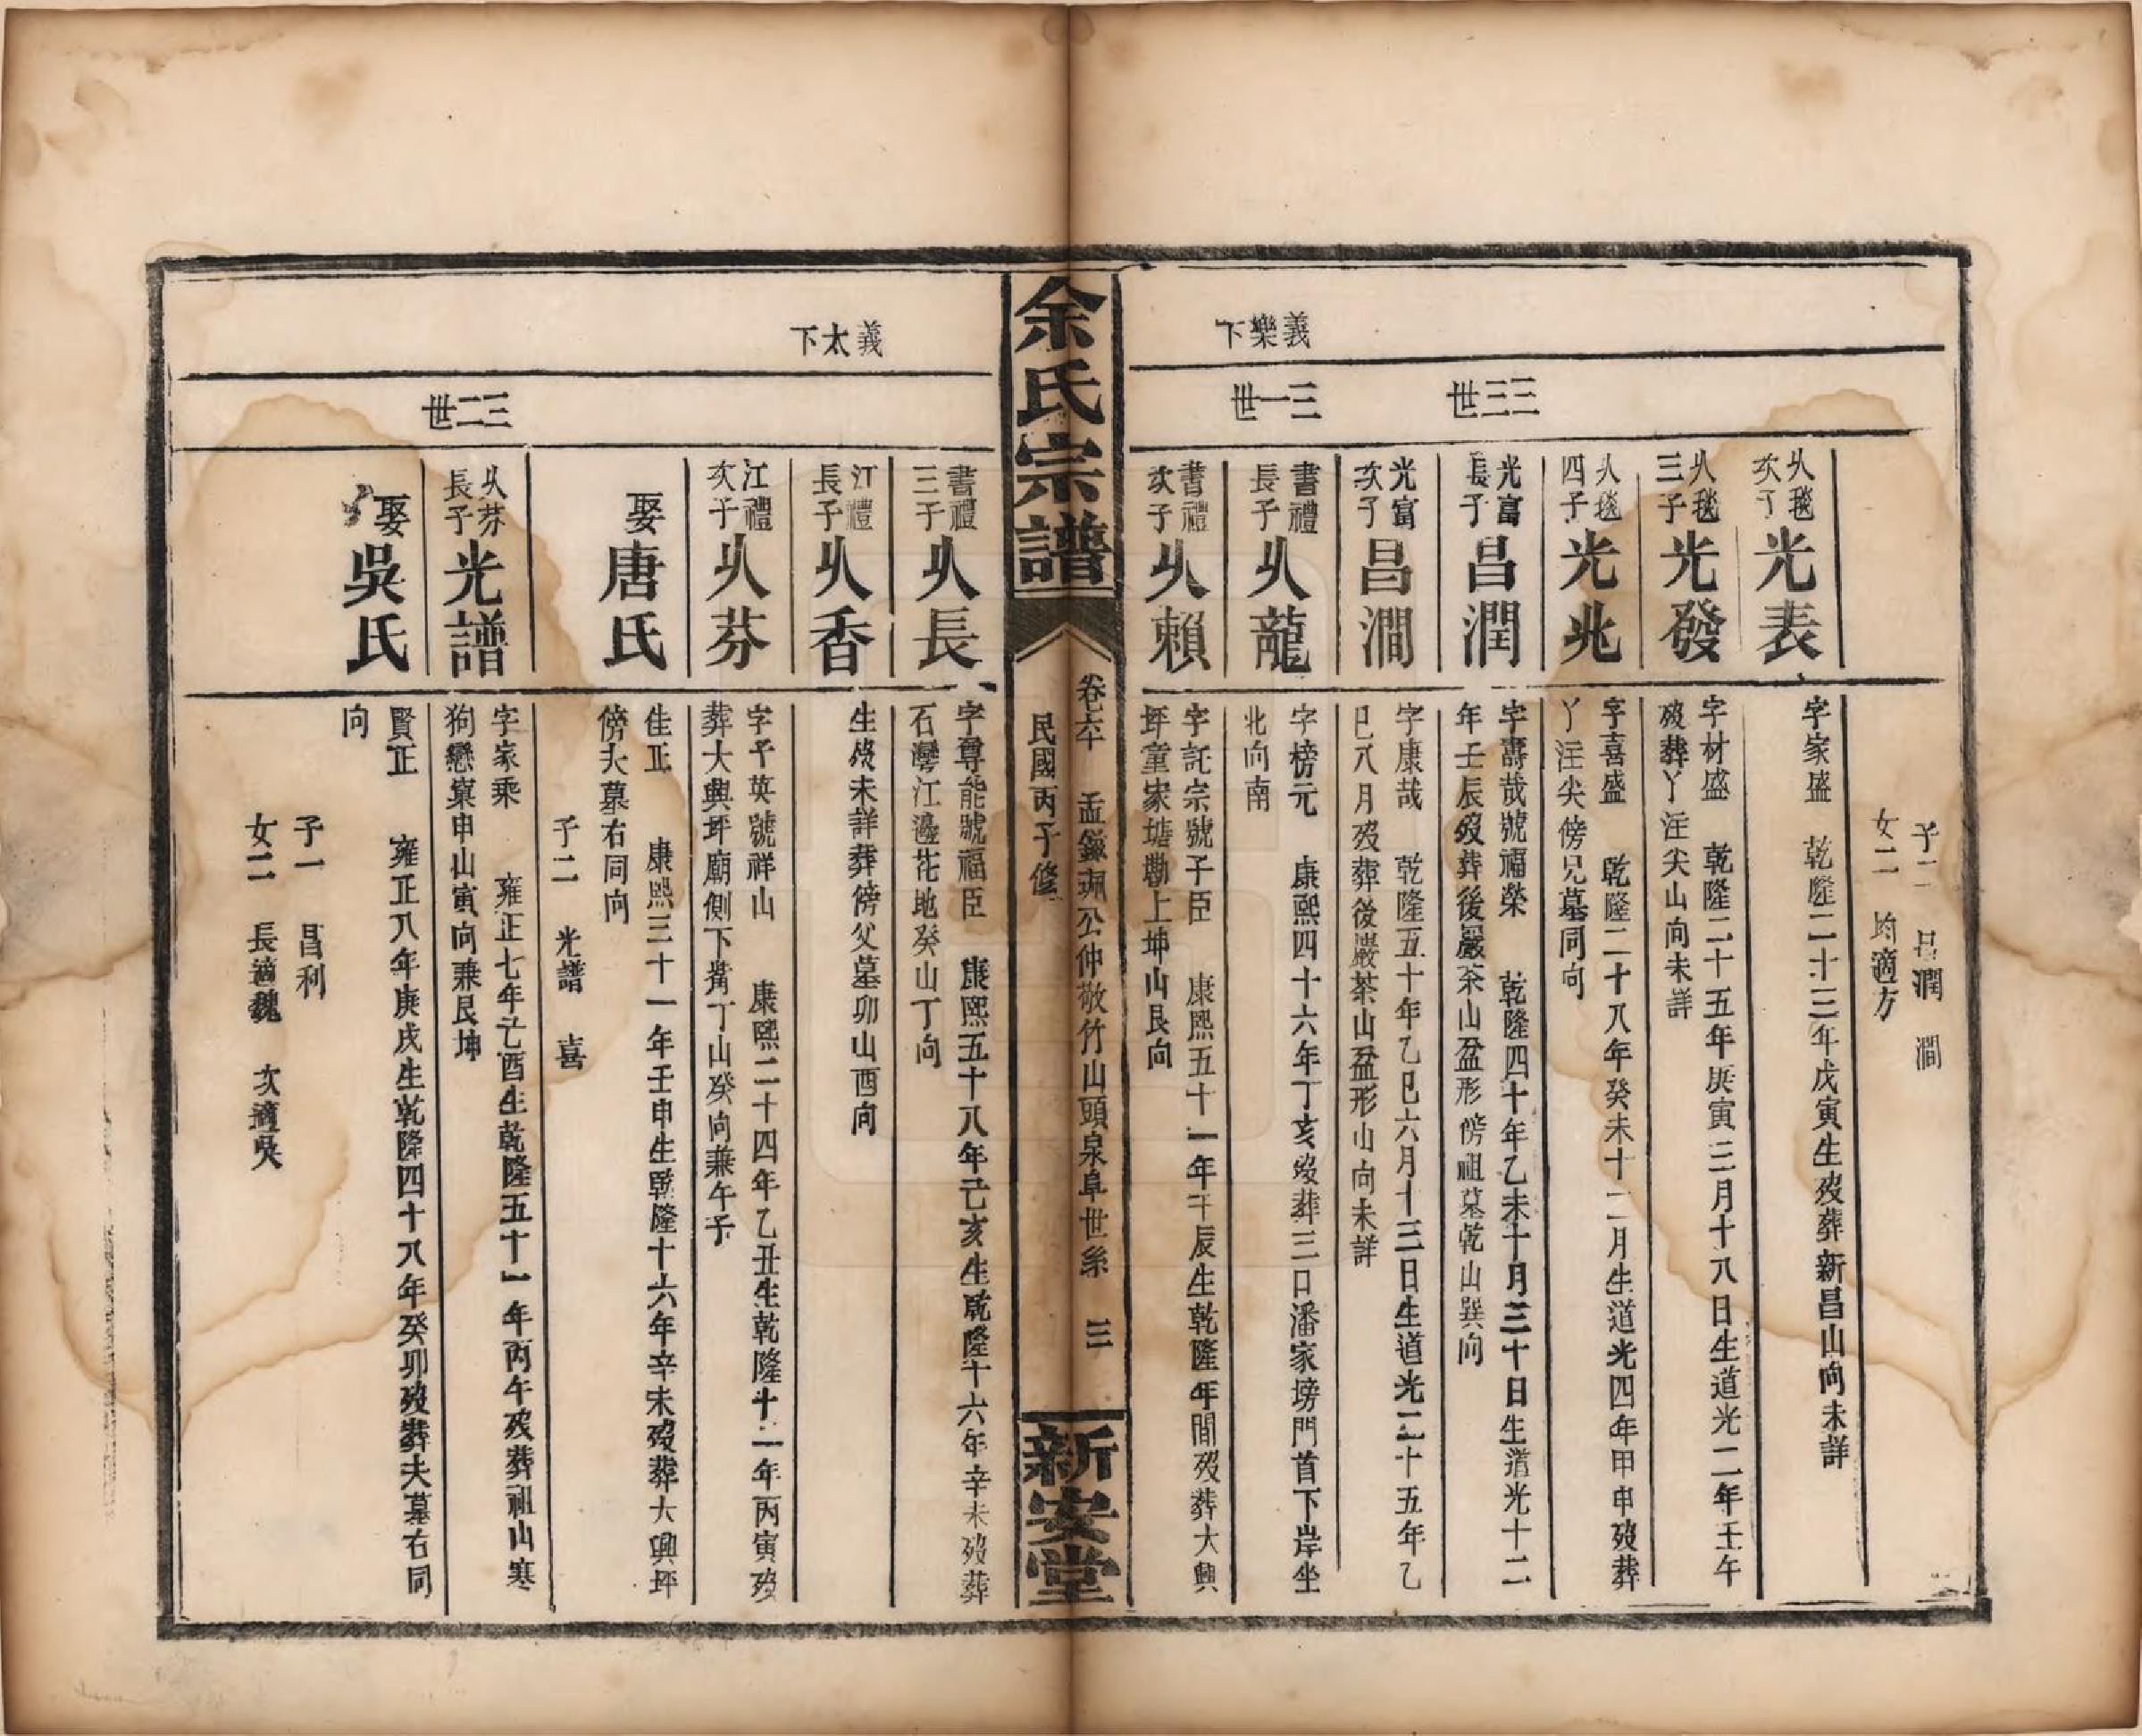 義樂下
三三世
三一世
子二 昌潤 澗
女二 均適方
次子
光表
字家盛 乾隆二十三年戊寅生歿葬新昌山向未詳
三子
光發
字材盛 乾隆二十五年庚寅三月十八日生道光二年壬午
歿葬丫汪尖山向未詳
四子
光兆
字喜盛 乾隆二十八年癸未十二月生道光四年甲申歿葬
丫汪尖傍兄墓同向
光富
長子
昌潤
字壽哉號福榮 乾隆四十年乙未十月三十日生道光十二
年壬辰歿葬後巖茶山盆形傍祖墓乾山巽向
光富
次子
昌澗
字康哉 乾隆五十年乙巳六月十三日生道光二十五年乙
巳八月歿葬後巖茶山盆形山向未詳
書禮
長子
㐆龍
字榜元 康熙四十六年丁亥歿葬三口潘家塝門首下岸坐
北向南
書禮
次子
㐆賴
字託宗號子臣 康熙五十一年壬辰生乾隆年間歿葬大興
坪童家塘墈上坤山艮向
余氏宗譜
卷六 孟鎵珮公仲敬竹山頭泉阜世系 三
民國丙子修
新安堂
義太下
三二世
書禮
三子
㐆長
字尊能號福臣 康熙五十八年己亥生乾隆十六年辛未歿葬
石灣江邊花地癸山丁向
江禮
長子
㐆香
生歿未詳葬傍父墓卯山酉向
江禮
次子
㐆芬
字千英號祥山 康熙二十四年乙丑生乾隆十二年丙寅歿
葬大興坪廟側下觜丁山癸向兼午子
娶
唐氏
佳正 康熙三十一年壬申生乾隆十六年辛未歿葬大興坪
傍夫墓右同向
子二 光譜 喜
㐆芬
長子
光譜
字家乘 雍正七年己酉生乾隆五十一年丙午歿葬祖山寒
狗戀窠申山寅向兼艮坤
娶
吳氏
賢正 雍正八年庚戌生乾隆四十八年癸卯歿葬夫墓右同
向
子一 昌利
女二 長適魏 次適吳